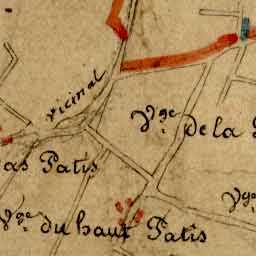 vicinal
Vge de la
bas Patis
Vge
Vge du haut Patis